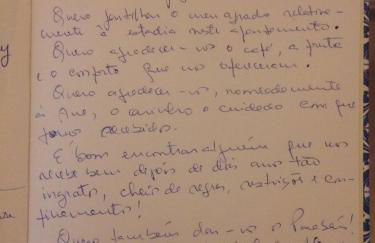 Quero partilhar o meu agrado relativa-
mente à estadia neste apartamento.
Quero agradecer-vos o café, a fruta
e o conforto que nos ofereceram.
Quero agradecer-vos, nomeadamente
à Ana, o carinho e cuidado com que
fomos recebidos.
É bom encontrar alguém que nos
recebe bem depois de dois anos tão
ingratos, cheios de regras, restrições e con-
finamentos!
Quero também dar-vos os Parabéns!